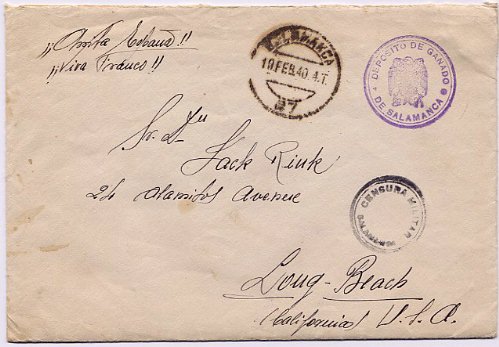 ¡¡Arriba España!!
¡¡Viva Franco!!
SALAMANCA
19 FEB. 40. 4.T.
DEPOSITO DE GANADO
DE SALAMANCA
Sr. Dn
Jack Rink
24 Alamitos Avenue
CENSURA MILITAR
SALAMANCA
Long-Beach
(California) U.S.A.